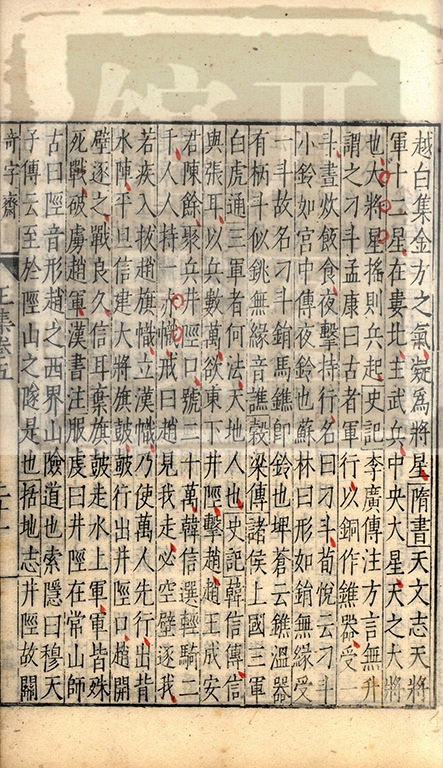 越白集金方之氣凝爲將星隋書天文志天將
軍十二星在婁北主武兵中央大星天之大將
也大將星搖則兵起史記李廣傳注方言無升
謂之刁斗孟康曰古者軍行以銅作鐎器受一
斗晝炊飯食夜擊持行名曰刁斗荀悅云刁斗
小鈴如宮中傳夜鈴也蘇林曰形如鋗無緣受
一斗故名刁斗鋗馬鐎即鈴也埤蒼云鐎溫器
有柄斗似銚無緣音譙穀梁傳諸侯上國三軍
白虎通三軍者何法天地人也史記韓信傳信
與張耳以兵數萬欲東下井陘擊趙趙王成安
君陳餘聚兵井陘口號二十萬韓信選輕騎二
千人人持一赤幟戒曰趙見我走必空壁逐我
若疾入拔趙旗幟立漢幟乃使萬人先行出背
水陣平旦信建大將旗鼓鼓行出井陘口趙開
壁逐之戰良久信耳棄旗鼓走水上軍軍皆殊
死戰破虜趙軍漢書注服虔曰井陘在常山師
古曰陘音形趙之西界山險道也索隱曰穆天
子傳云至於陘山之隧是也括地志井陘故關
奇字齋